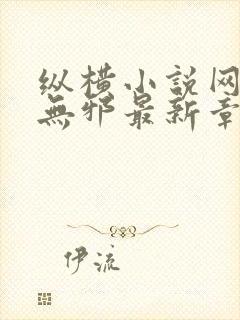 纵横小说网
無邪最新章
伊流